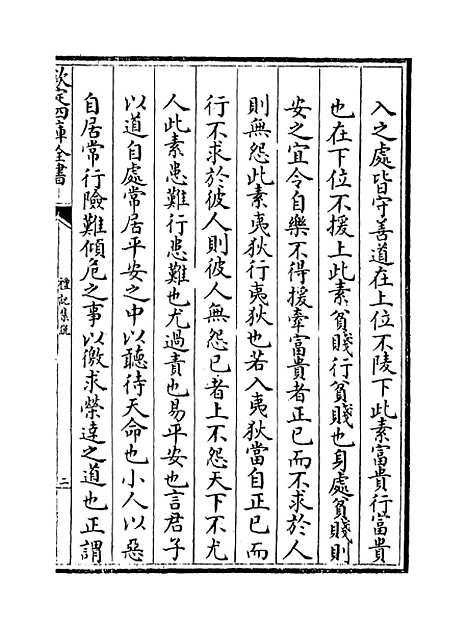 入之處皆守善道在上位不陵下此素富貴行富貴
也在下位不援上此素貧賤行貧賤也身處貧賤則
安之宜令自樂不得援牽富貴者正已而不求於人
則無怨此素夷狄行夷狄也若入夷狄當自正已而
行不求於彼人則彼人無怨已者上不怨天下不尤
人此素患難行患難也尤過責也易平安也言君子
以道自處常居平安之中以聽待天命也小人以惡
自居常行險難傾危之事以徼求榮達之道也正謂
欽定四庫全書
禮記集說
二